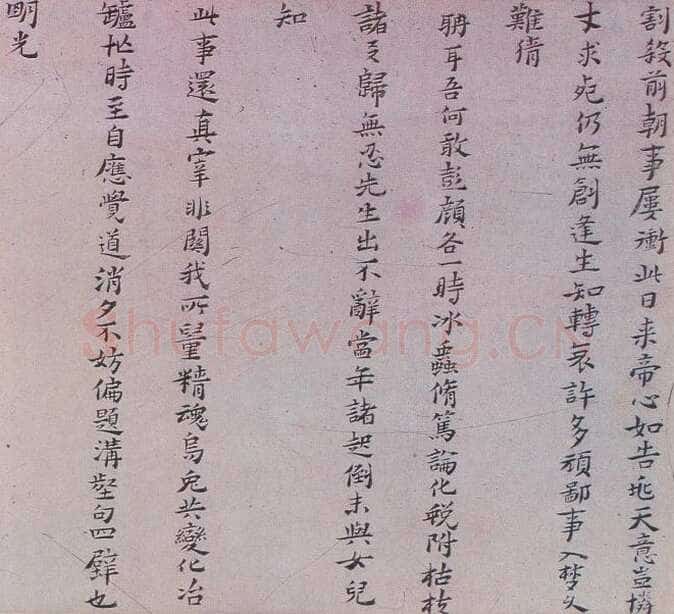 割殺前朝事屢衝此日来帝心如告兆天意豈憐
才求死仍無創逢生知轉哀許多頑鄙事入夢久
難猜
聃耳吾何敢彭顔各一時冰蟲脩篤論化蛻附枯枝
諸歸無忍先生出不辭當年諸起倒未與女兒
知
此事還真宰非關我所量精魂烏兔共變化冶
鑪忙時至自應覺道消夕不妨偏題溝壑句四壁也
明光
Shufawang.CN